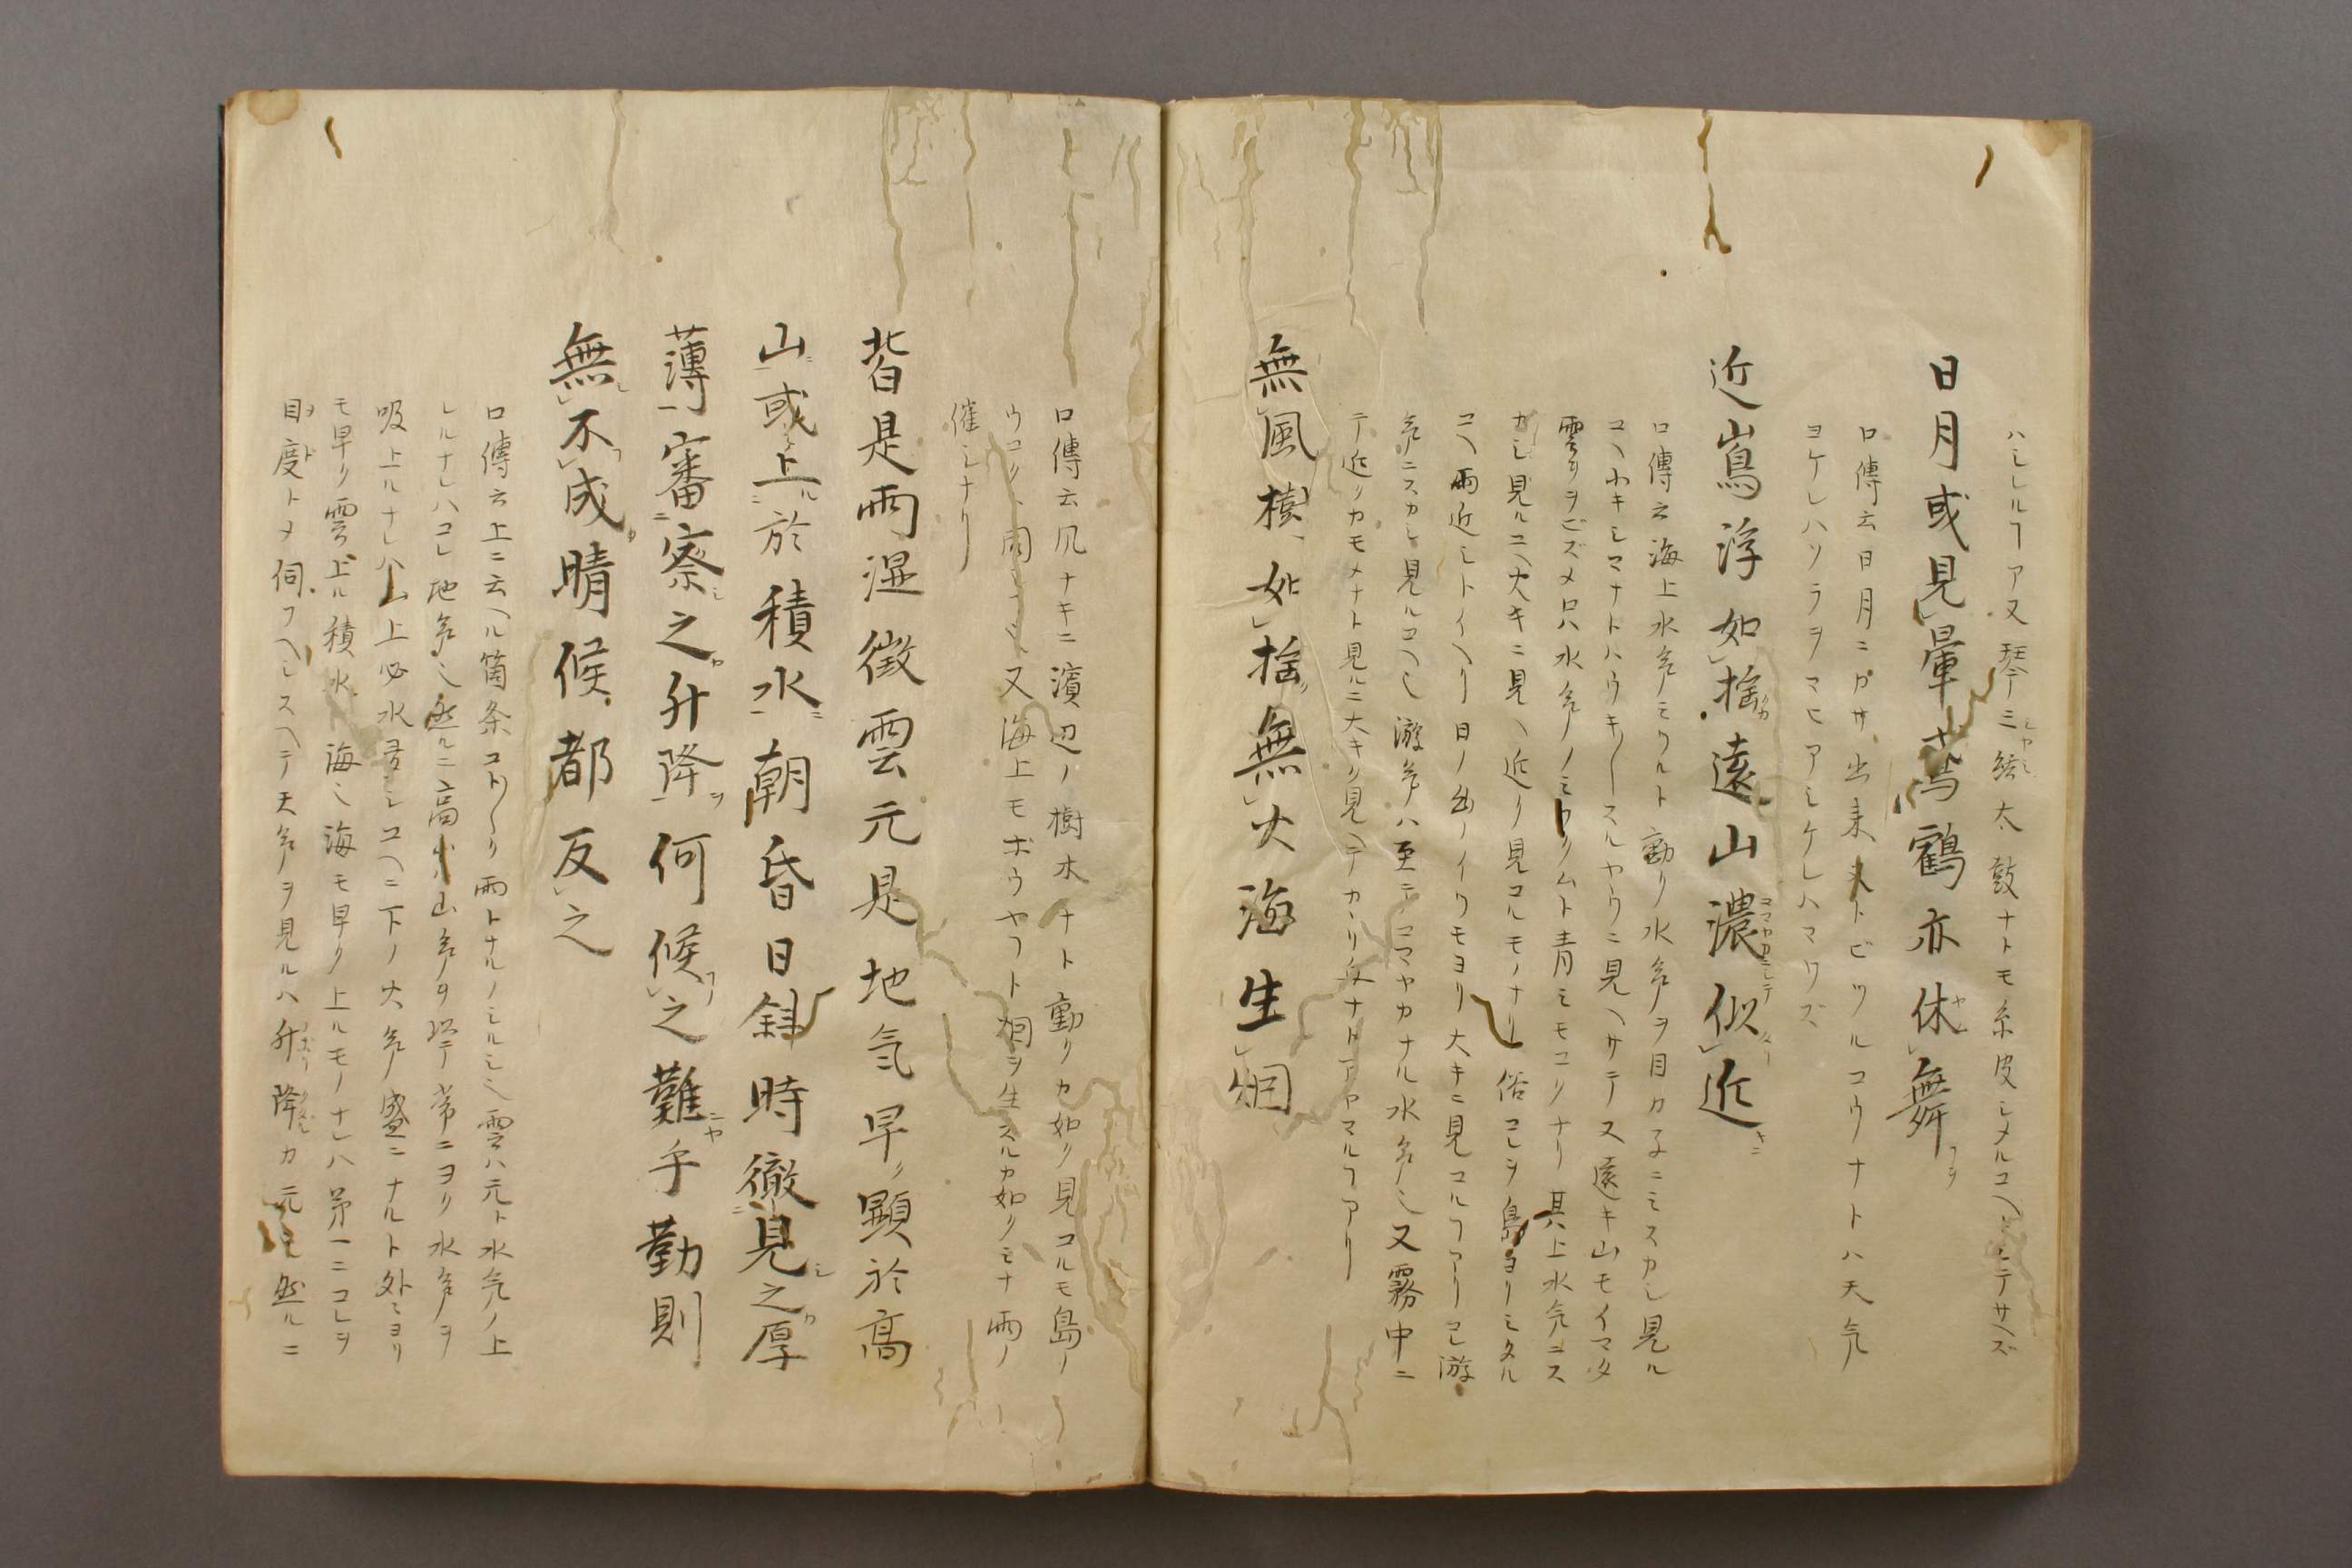 ハシルヿアヌ琴三絃太鼓ナトモ糸皮シメルコヘニテサヘズ
日月或見暈鳶鶴亦休舞
口傳云日月ニカサ出来トビツルコウナトハ天気
ヨケレハソラヲマヒアシケレハマワズ
近嶌浮如捨遠山濃似近
口傳云海上水気ノミウルト動リ水気ヲ目カ子ニミスカシ見ル
コヘ小キシマナトハウキ〱スルヤウニ見ヘサテ又遠キ山モイマタ
雲リヲビズメ只ハ水気ノミウリムト青ミモコリナリ其上水気ニス
カシ見ルコヘ大キニ見ヘ近リ見コルモノナリ俗コレヲ島ヨリミタル
コヘ雨近シトイヘリ日ノ出ノイリモヨリ大キニ見コルヿアリコレ游
気ニスカシ見ルコヘ也游気ハ至テコマヤカナル水気也又霧中ニ
テ近リカモメナト見ルニ大キク見ヘテカリ又ナトアヤマルヿアリ
無風樹如捨無火海生烟
口傳云風ナキニ濱辺ノ樹木ナト動リカ如リ見コルモ島ノ
ウコリ同シ又海上モボウヤフト烟ヲ生スルカ如リミナ雨ノ
催シナリ
皆是雨湿徴雲元是地氣早顕於高
山或上於積水朝昏日斜時徹見之厚
薄審察之升降何候之難乎勤則
無不成晴候都反之
口傳云上ニ云ヘル箇条コト〱リ雨トナルノシルシ也雲ハ元ト水気ノ上
レルナレハコレ地気也然ルニ高山気ヲ常ニヨリ水気ヲ
吸上ルナレハ山上必水コヘニ下ノ火気盛ニナルト外ミヨリ
モ早リ雲上ル積水海也海モ早リ上ルモノナレハ第一ニコレヲ
目度トメ伺フヘシスヘテ天気ヲ見ルハ升降カ元也然ルニ